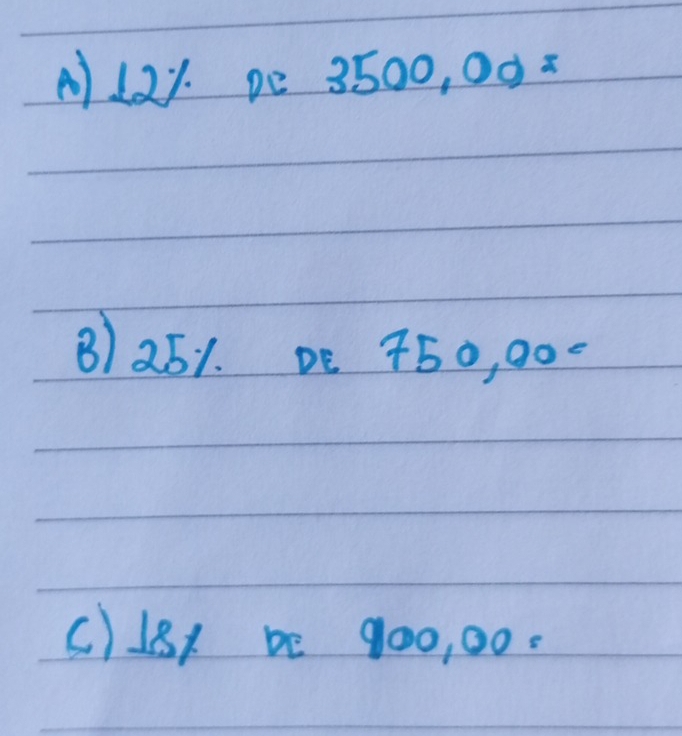 A) 12% DE 3500,00=
B) 25% DE 750,00=
C) 18% DE 900,00=